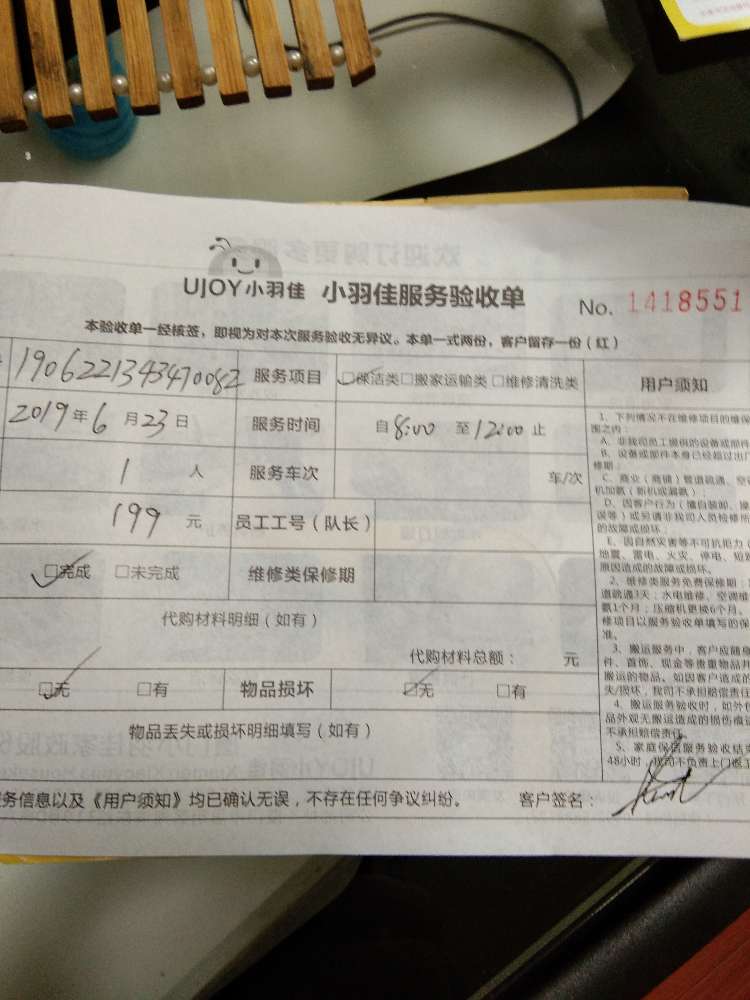 UJOY小羽佳 小羽佳服务验收单 No. 1418551
本验收单一经核签，即视为对本次服务验收无异议。本单一式两份，客户留存一份（红）
1906221343470082 服务项目 □保洁类□搬家运输类□维修清洗类 用户须知
2019年6月23日 服务时间 自8:00至12:00止
1人 服务车次 车/次
199元 员工工号（队长）
□完成 □未完成 维修类保修期
代购材料明细（如有）
代购材料总额： 元
□无 □有 物品损坏 □无 □有
物品丢失或损坏明细填写（如有）
务信息以及《用户须知》均已确认无误，不存在任何争议纠纷。 客户签名：
1、下列情况不在维修项目的维保
围之内：
A、非我司员工提供的设备或部件
B、设备或部件本身已经超过出厂
修期；
C、商业（商铺）管道疏通、空
机加氨（新机或漏氨）；
D、因客户行为（擅自装卸、操
误等）或另请非我司人员检修所
的故障或损坏；
E、因自然灾害等不可抗力（
地震、雷电、火灾、停电、短路
原因造成的故障或损坏。
2、维修类服务免费保修期：
道疏通3天；水电维修、空调维
氨1个月；压缩机更换6个月、
修项目以服务验收单填写的保
准。
3、搬运服务中，客户应随身
件、首饰、现金等贵重物品
搬运的物品。如因客户造成的
失/损坏，我司不承担赔偿责任
4、搬运服务验收时，如外包
品外观无搬运造成的损伤痕迹
不承担赔偿责任。
5、家庭保洁服务验收结束
48小时，我司不负责上门返工